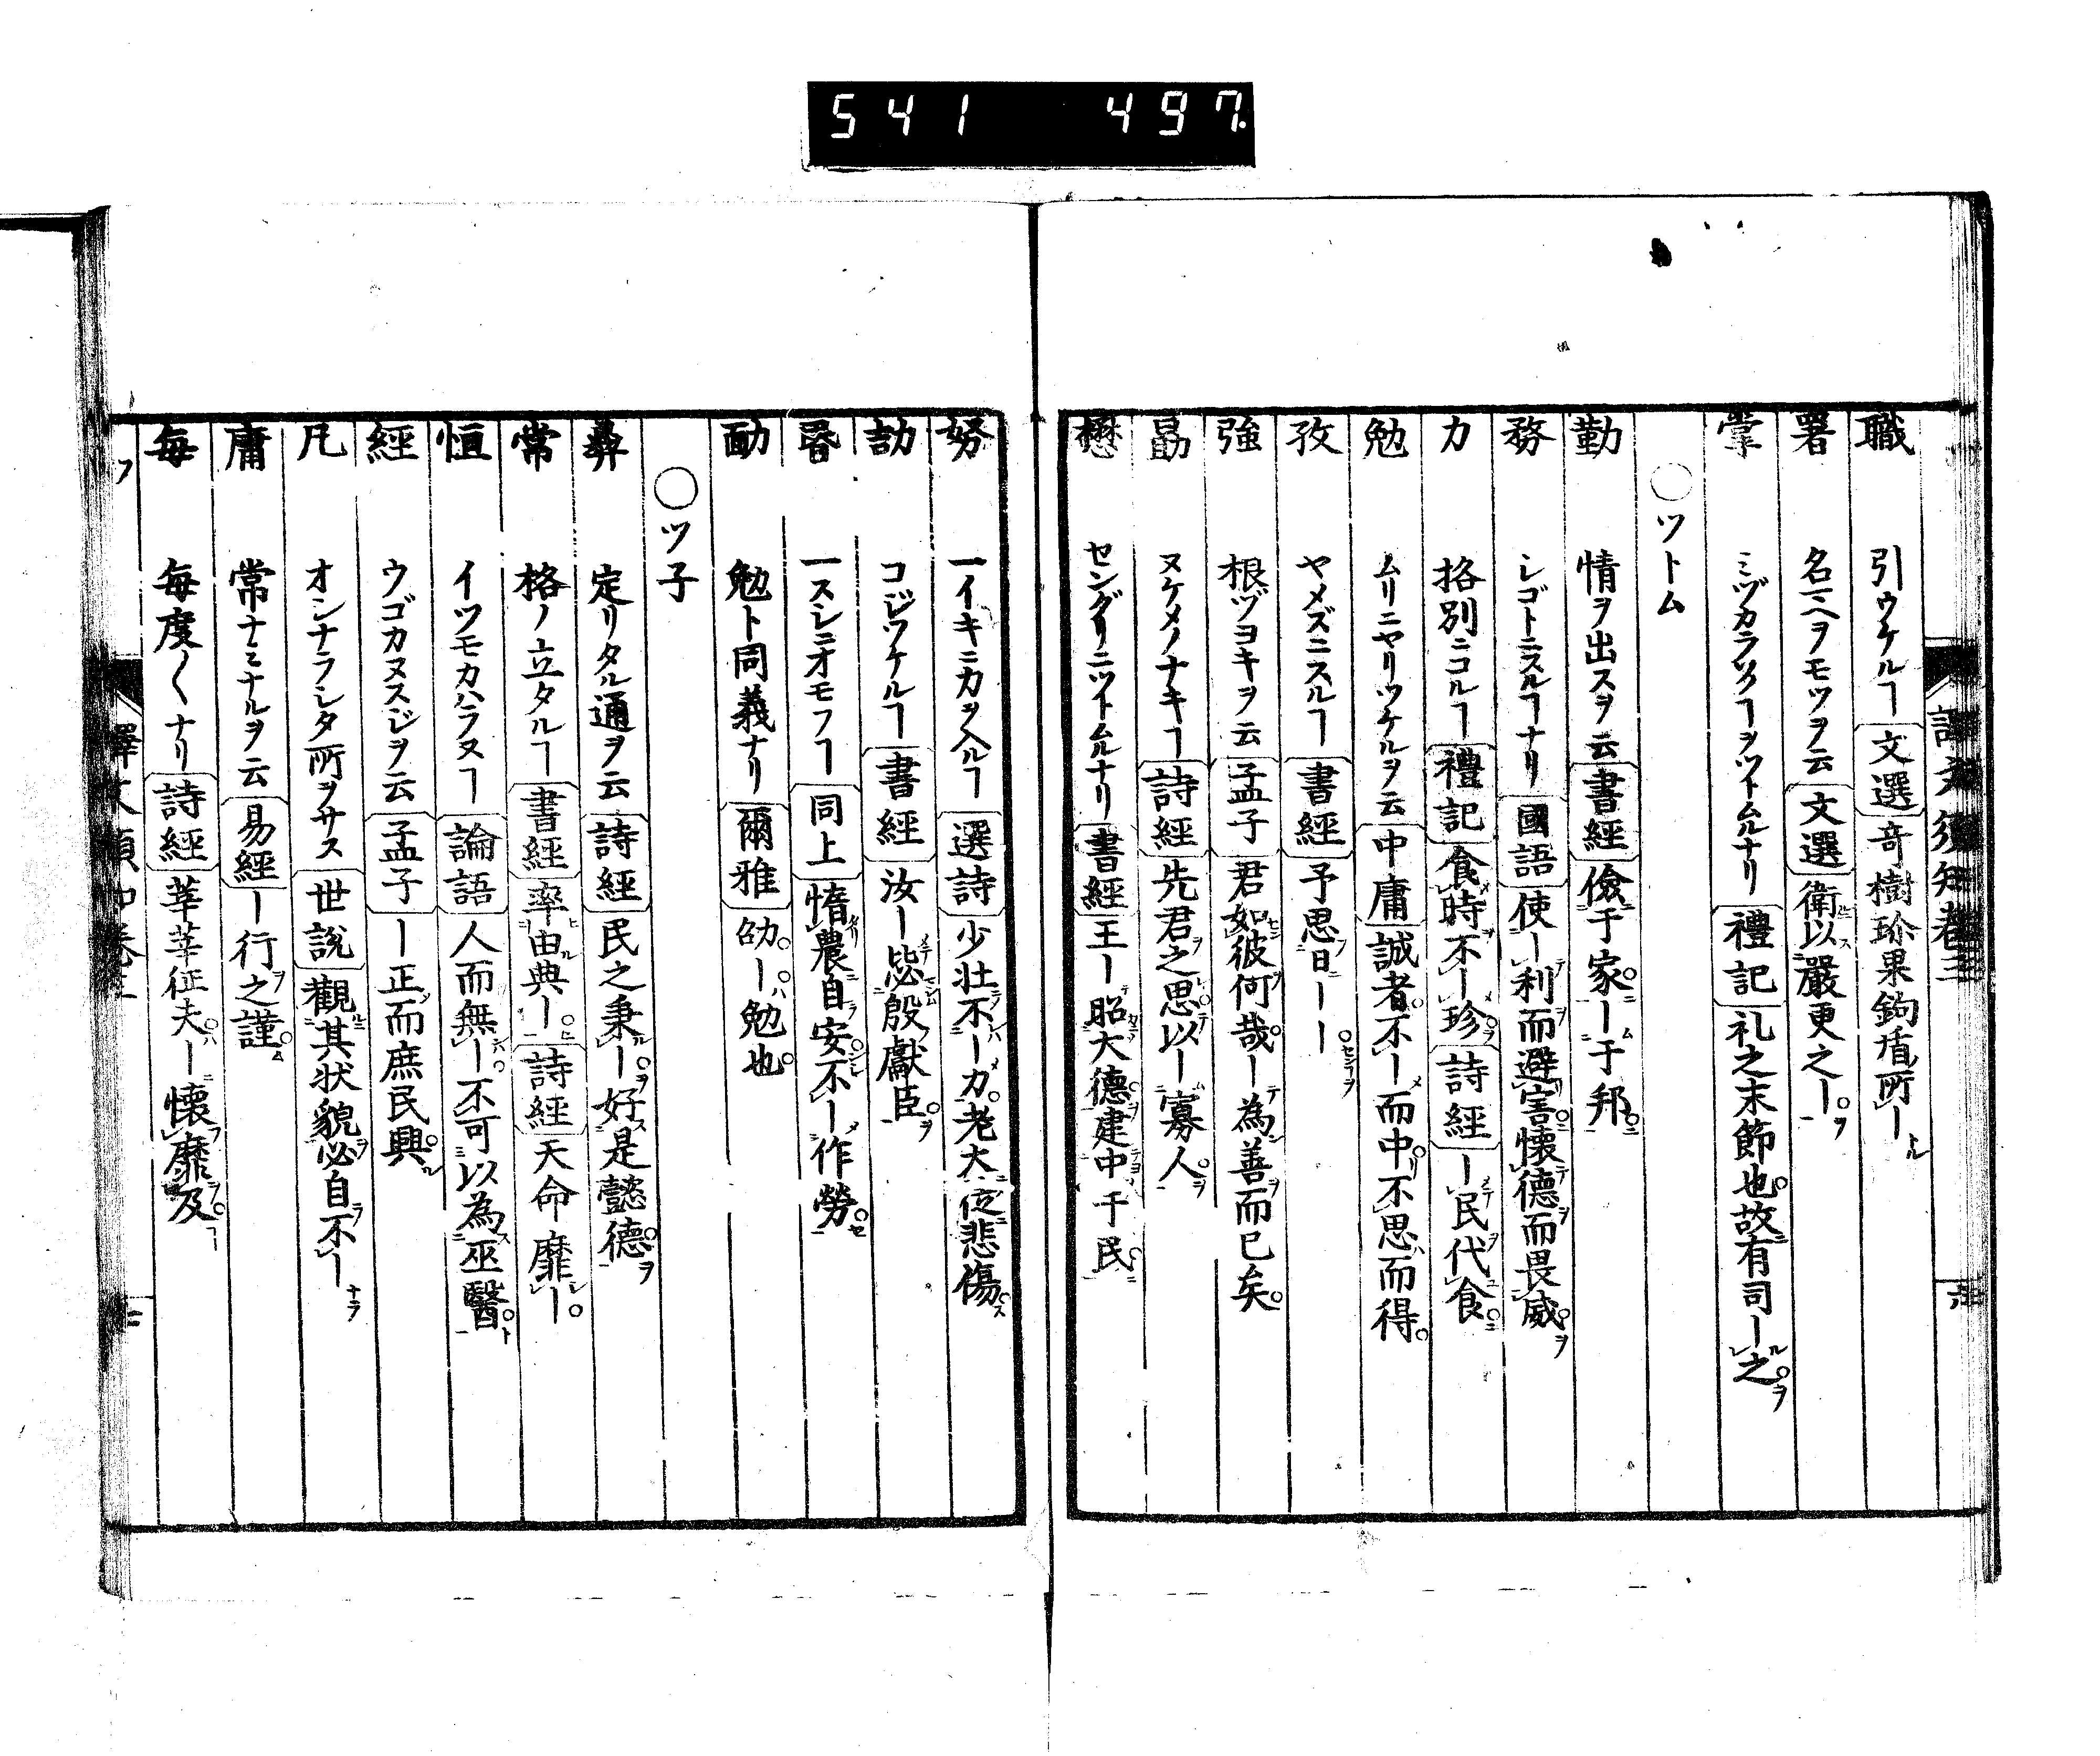 541 497.
職 引ウケルヿ 文選 竒樹珍果鉤盾所ー
署 名前ヲモツヲ云 文選 衛以嚴更之ー
掌 ミヅカラソノヿヲツトムルナリ 禮記 礼之末節也故有司ー之
○ツトム
勤 情ヲ出スヲ云 書經 儉于家ー于邦
務 シゴトニスルヿナリ 國語 使ー利而避害懷德而畏威
力 挌別ニコルヿ 禮記 食時不ー珍 詩經 ー民代食
勉 ムリニヤリツケルヲ云 中庸 誠者不ー而中不思而得
孜 ヤメズニスルヿ 書經 予思日ーー
強 根ヅヨキヲ云 孟子 君如彼何哉ー為善而已矣
勗 ヌケメノナキヿ 詩經 先君之思以ー寡人
懋 セングリニツトムルナリ 書經 王ー昭大德建中于民
努 一イキニカヲ入ルヿ 選詩 少壮不ー力老大徒悲傷
劼 コジツケルヿ 書經 汝ー毖殷獻臣
昬 一スジニオモフヿ 同上 惰農自安不ー作勞
勔 勉ト同義ナリ 爾雅 劭ー勉也
○ツ子
彝 定リタル通ヲ云 詩經 民之秉ー好是懿德
常 格ノ立タルヿ 書經 率由典ー 詩經 天命靡ー
恒 イツモカハラヌヿ 論語 人而無ー不可以為巫醫
經 ウゴカヌスジヲ云 孟子 ー正而庶民興
凡 オシナラシタ所ヲサス 世說 觀其状貌必自不ー
庸 常ナミナルヲ云 易經 ー行之謹
毎 毎度〱ナリ 詩經 莘莘征夫ー懷靡及